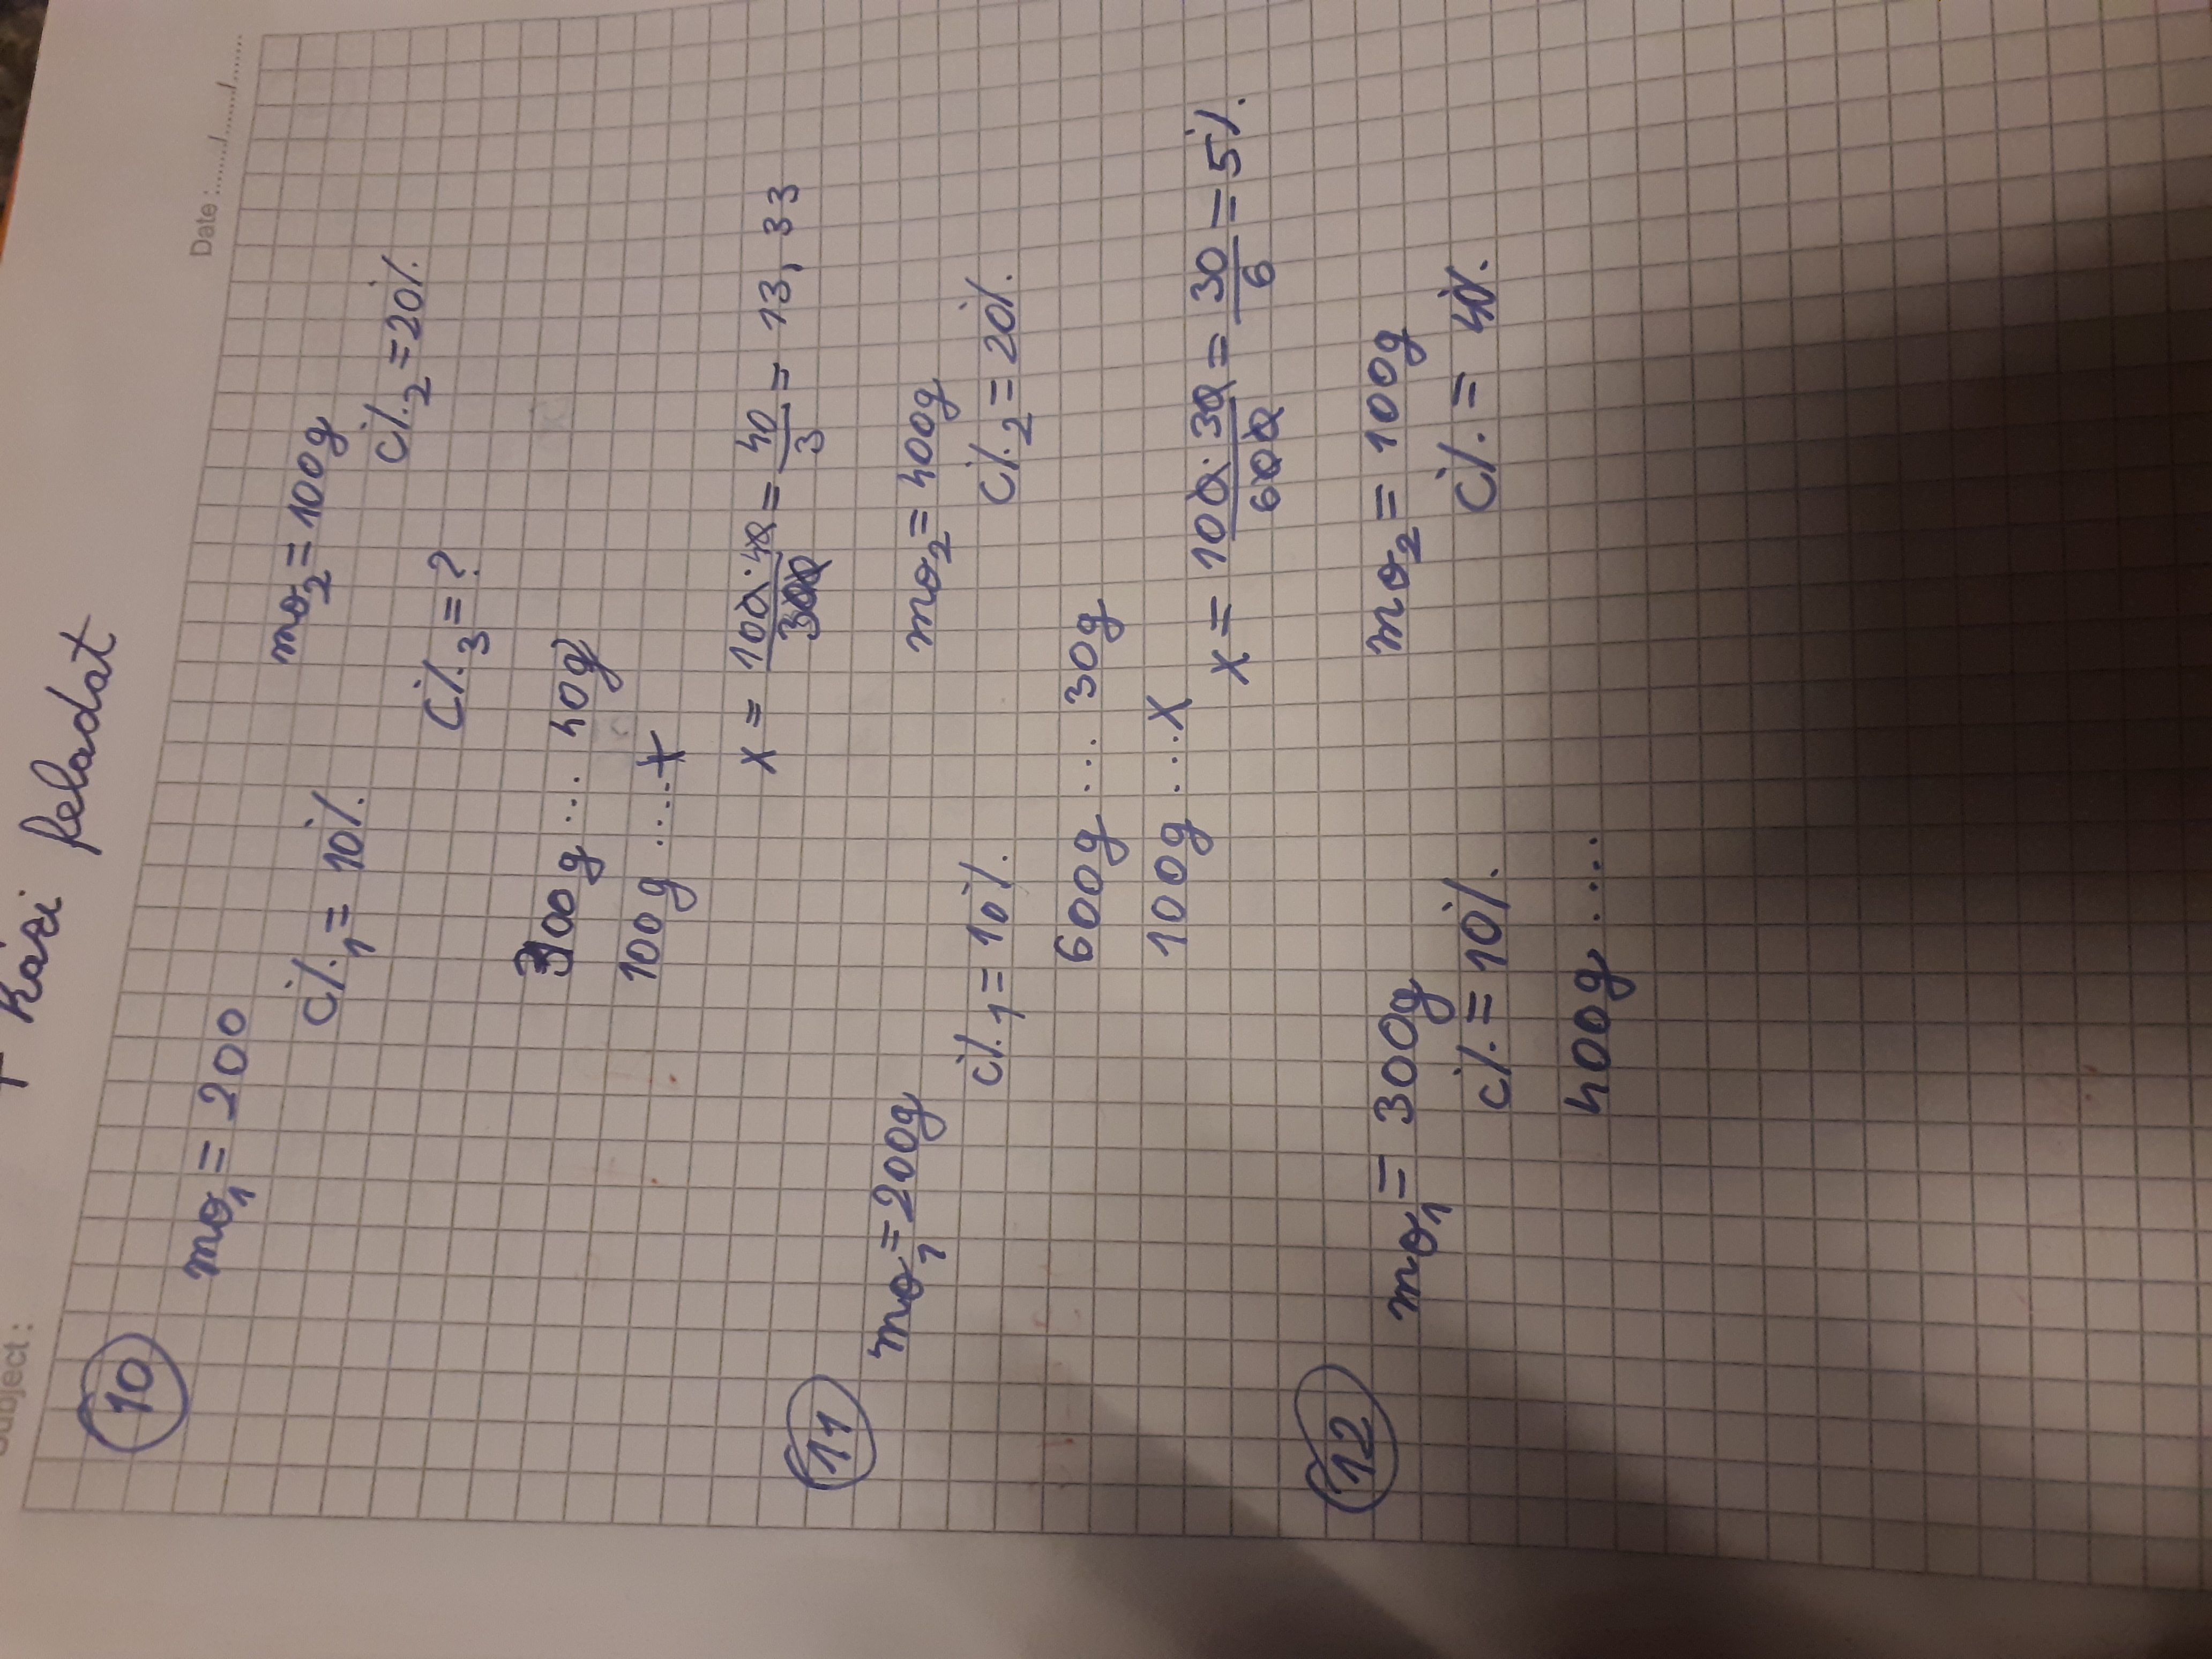 Subject :
Date :....../....../......
Házi feladat
10
mo₁ = 200
mo₂ = 100g
c%₁ = 10%
c%₂ = 20%
c%₃ = ?
300g .... 40g
100g .... x
x = 100·40/300 = 40/3 = 13,33
11
mo₁ = 200g
mo₂ = 400g
c%₁ = 10%
c%₂ = 20%
600g .... 30g
100g .... x
x = 100·30/600 = 30/6 = 5%
12
mo₁ = 300g
mo₂ = 100g
c% = 10%
c% = 4%
400g ....